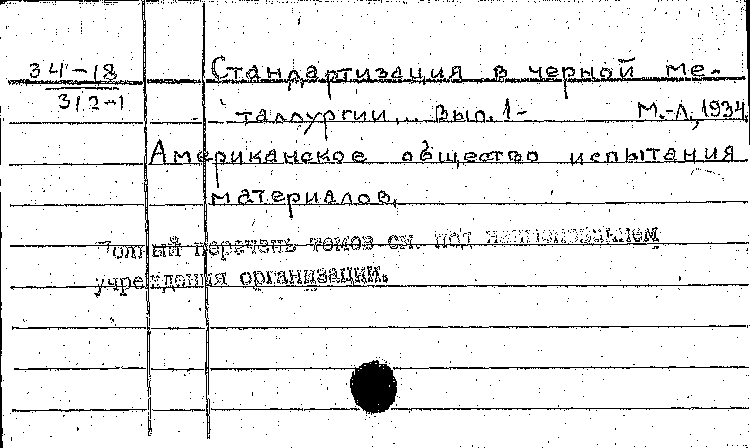 34-18
312-1
Стандартизация в черной ме-
таллургии... Вып. 1- М.-Л., 1934.
Американское общество испытания
материалов.
Полный перечень томов см. под наименованием
учреждения организации.